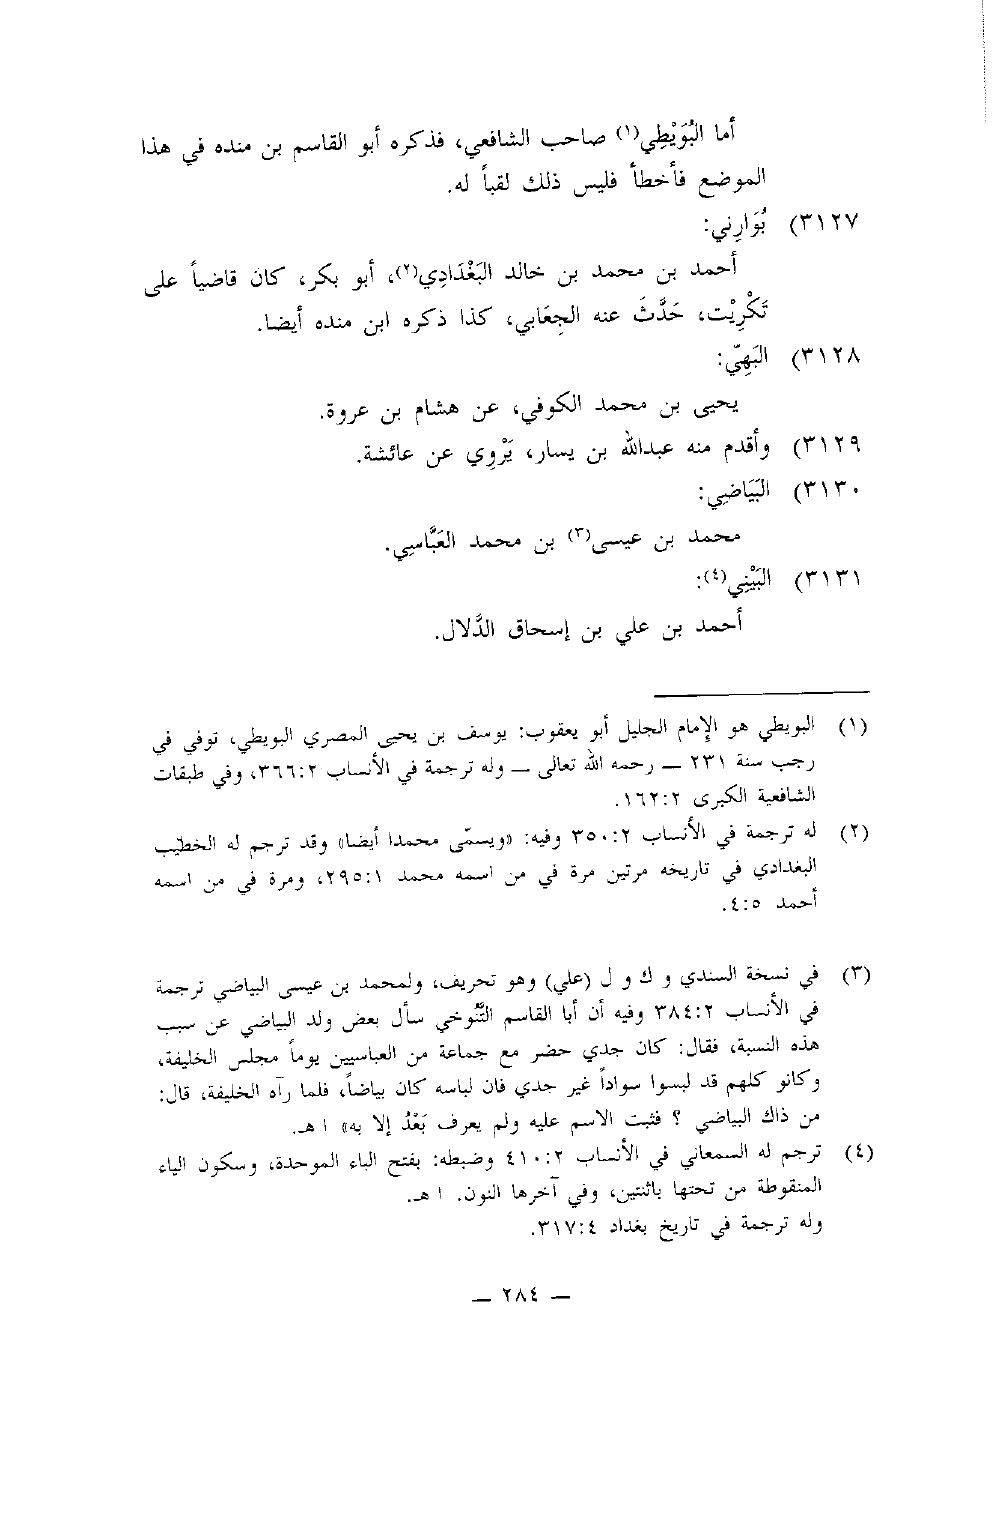 أما البُوَيْطِي(١) صاحب الشافعي، فذكره أبو القاسم بن منده في هذا
الموضع فأخطأ فليس ذلك لقباً له.
٣١٢٧) بُوَارِني:
أحمد بن محمد بن خالد البَغْدَادِي(٢)، أبو بكر، كان قاضياً على
تَكْرِيْت، حَدَّثَ عنه الجِعَابي، كذا ذكره ابن منده أيضا.
٣١٢٨) البَهِيّ:
يحيى بن محمد الكوفي، عن هشام بن عروة.
٣١٢٩) وأقدم منه عبدالله بن يسار، يَرْوِي عن عائشة.
٣١٣٠) البَيَاضِي:
محمد بن عيسى(٣) بن محمد العَبَّاسِي.
٣١٣١) البَيْنِي(٤):
أحمد بن علي بن إسحاق الدَّلال.
(١) البويطي هو الإمام الجليل أبو يعقوب: يوسف بن يحيى المصري البويطي، توفي في
رجب سنة ٢٣١ ــ رحمه الله تعالى ــ وله ترجمة في الأنساب ٣٦٦:٢، وفي طبقات
الشافعية الكبرى ١٦٢:٢.
(٢) له ترجمة في الأنساب ٣٥٠:٢ وفيه: «ويسمّى محمدا أيضا» وقد ترجم له الخطيب
البغدادي في تاريخه مرتين مرة في من اسمه محمد ٢٩٥:١، ومرة في من اسمه
أحمد ٤:٥.
(٣) في نسخة السندي و ك و ل (علي) وهو تحريف، ولمحمد بن عيسى البياضي ترجمة
في الأنساب ٣٨٤:٢ وفيه أن أبا القاسم التَّنُوخي سأل بعض ولد البياضي عن سبب
هذه النسبة، فقال: كان جدي حضر مع جماعة من العباسيين يوماً مجلس الخليفة،
وكانو كلهم قد لبسوا سواداً غير جدي فان لباسه كان بياضاً، فلما رآه الخليفة، قال:
من ذاك البياضي ؟ فثبت الاسم عليه ولم يعرف بَعْدُ إلا به» ا هـ.
(٤) ترجم له السمعاني في الأنساب ٤١٠:٢ وضبطه: بفتح الباء الموحدة، وسكون الياء
المنقوطة من تحتها باثنتين، وفي آخرها النون. ا هـ.
وله ترجمة في تاريخ بغداد ٣١٧:٤.
ــ ٢٨٤ ــ